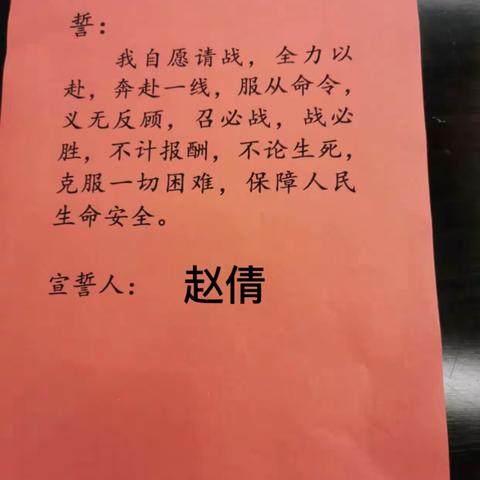 誓：
我自愿请战，全力以
赴，奔赴一线，服从命令，
义无反顾，召必战，战必
胜，不计报酬，不论生死，
克服一切困难，保障人民
生命安全。
宣誓人：赵倩